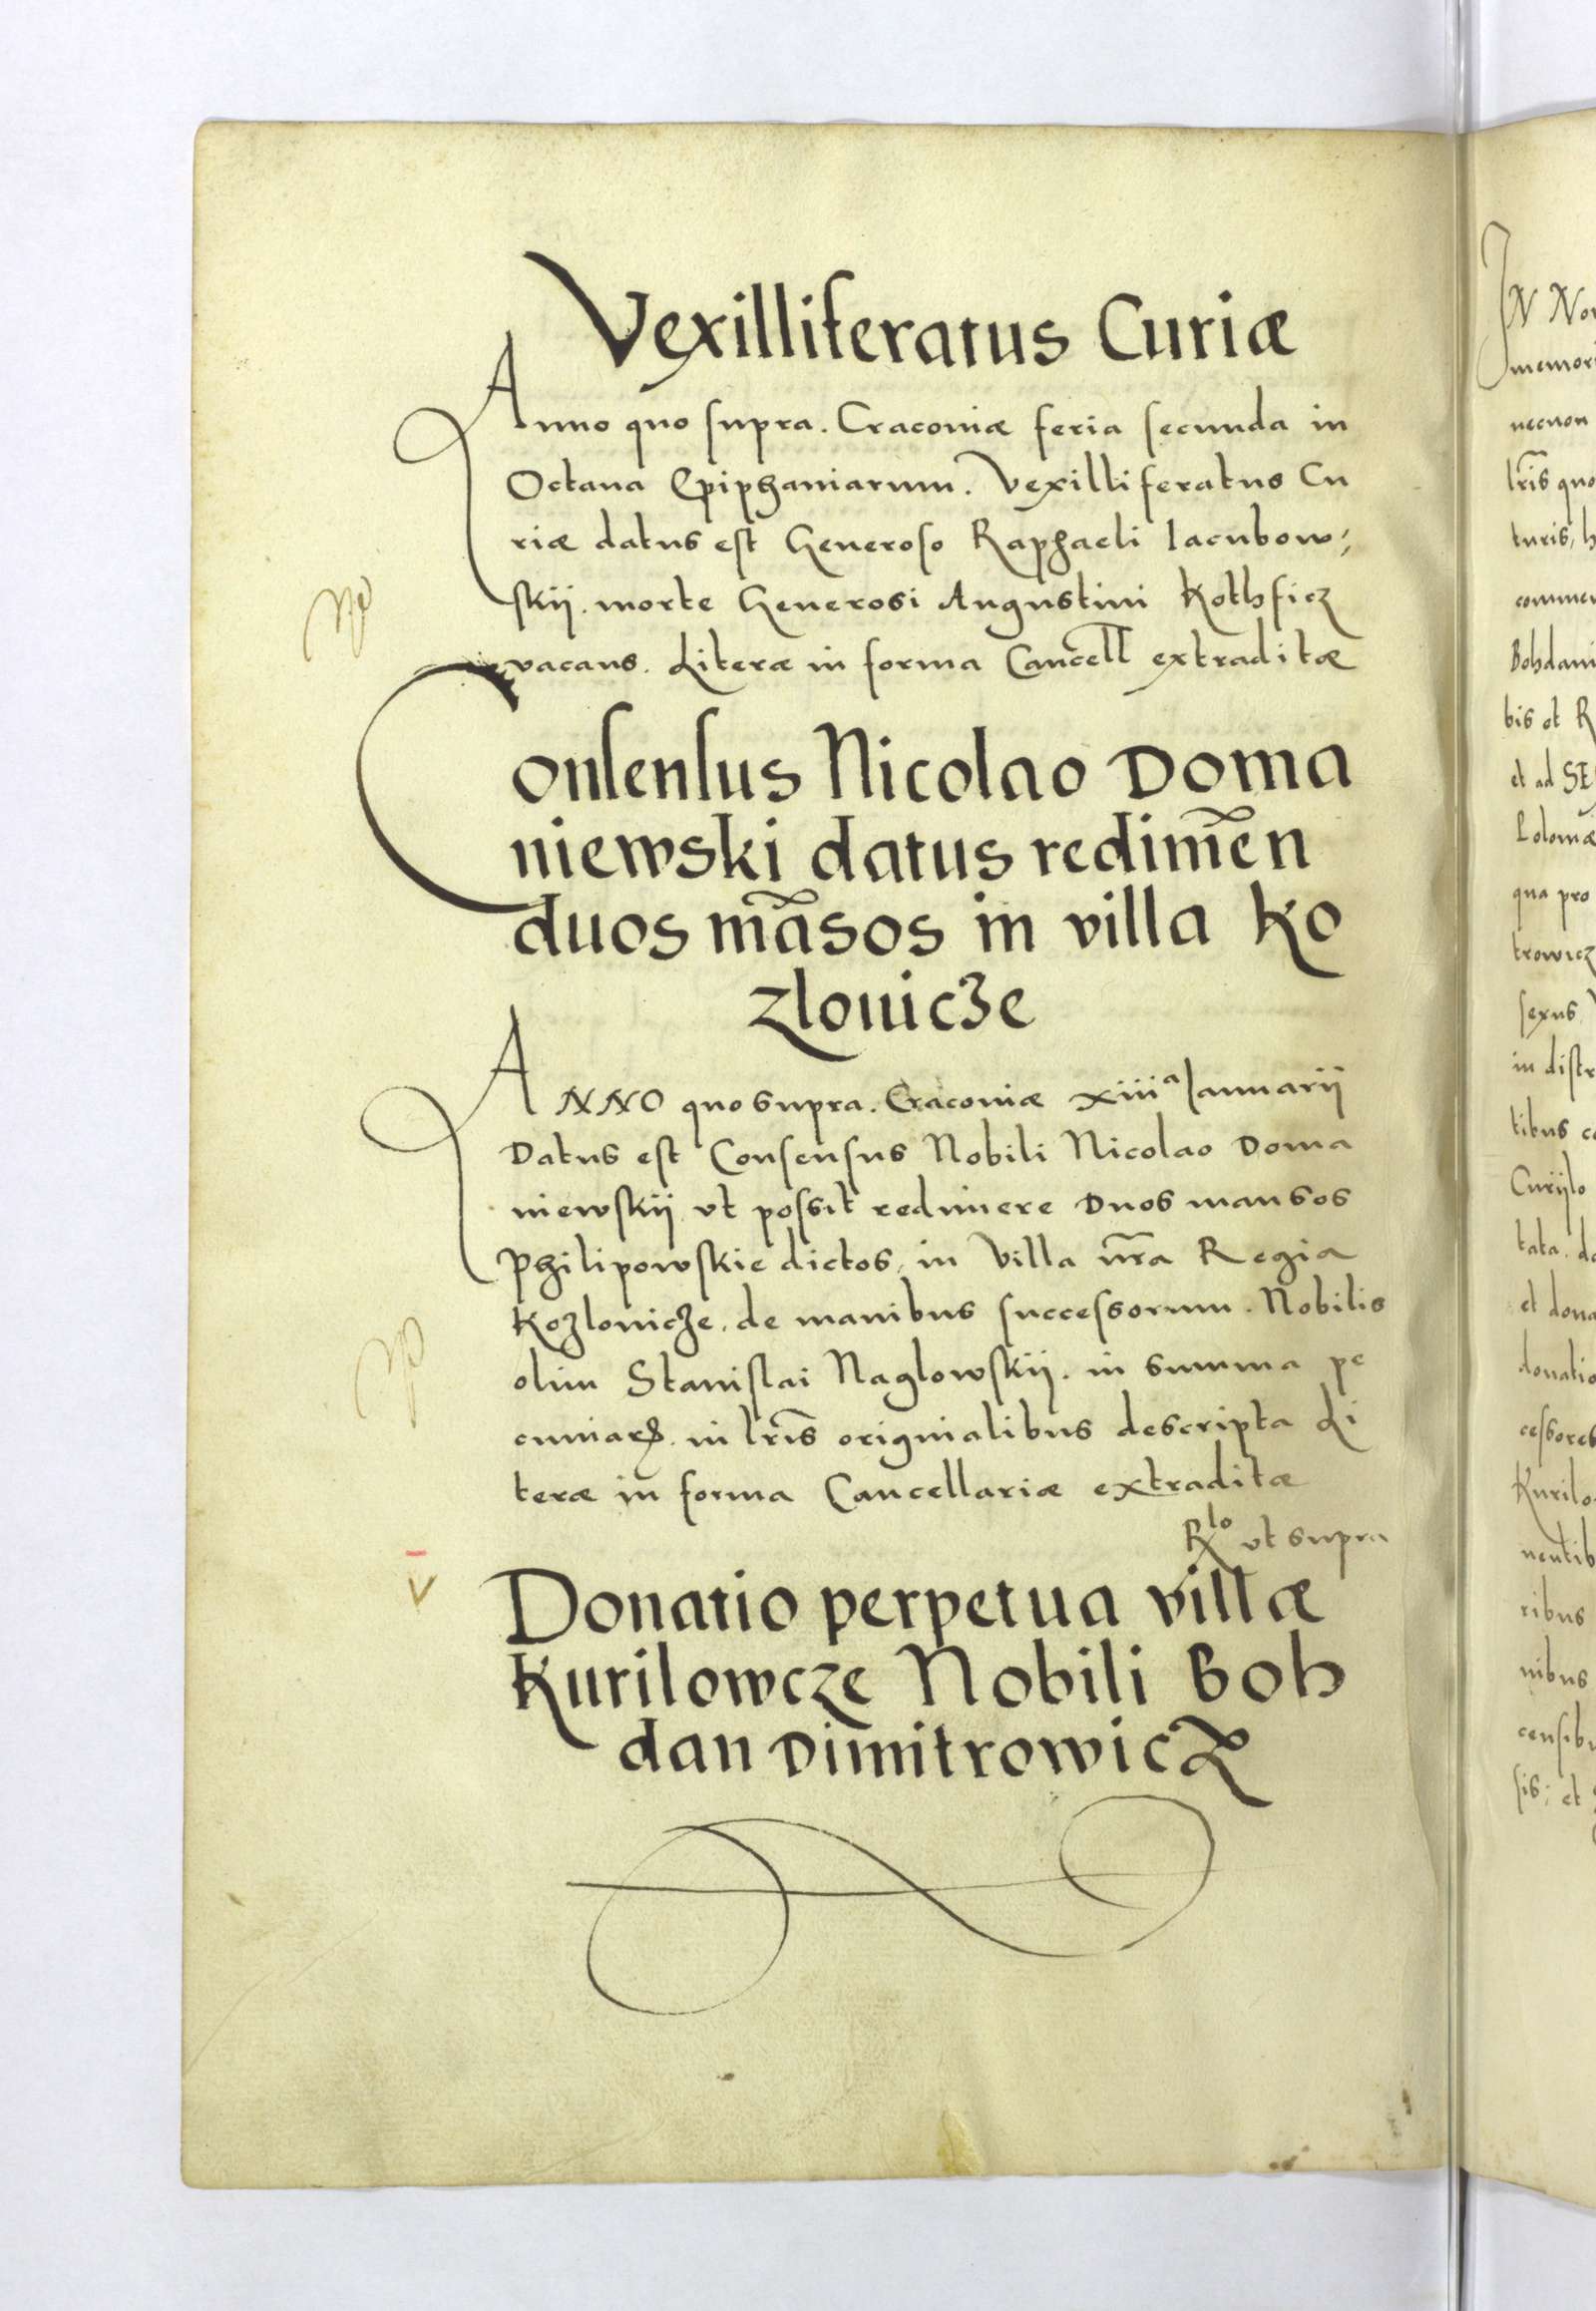 Vexilliferatus Curiæ
Anno quo supra. Cracoviæ feria secunda in
Octava Epiphaniarum. Vexilliferatus Cu
riæ datus est Generoso Raphaeli Iacubow;
skij. morte Generosi Augustini Kothficz
vacans. Literæ in forma Cancell extraditæ
Consensus Nicolao Doma
niewski datus redimen̄
duos mãsos in villa Ko
zlovicze
ANNO quo supra. Cracoviæ xiiiᵃ Ianuarij
Datus est Consensus Nobili Nicolao Doma
niewskij vt possit redimere Duos mansos
Philipowskie dictos, in Villa nr̄a Regia
Kozlovicze. de manibus successorum. Nobilis
olim Stanislai Naglowskij. in summa pe
cuniarꝝ. in lrīs originalibus descripta Li
teræ in forma Cancellariæ extraditæ
Rˡᵒ vt supra
V
Donatio perpetua villæ
Kurilowcze Nobili Boh
dan Dimitrowicz
IN No
memori
necnon
lrīs quo
turis, h
commen
Bohdani
bis et R
et ad SE
Polonæ
qua pro
trowicz
sexus
in distr
tibus c
Curijlo
tata. d
et dona
donatio
cessores
Kurilo
nentib
ribus
nibus
censibu
sis; et